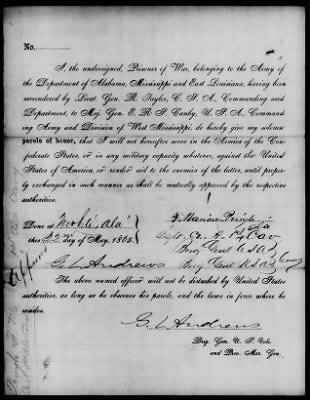 No.
I, the undersigned, Prisoner of War, belonging to the Army of
the Department of Alabama, Mississippi and East Louisiana, having been
surrendered by Lieut. Gen. R. Taylor, C. S. A., Commanding said
Department, to Maj. Gen. E. R. S. Canby, U. S. A., Command-
ing Army and Division of West Mississippi, do hereby give my solemn
parole of honor, that I will not hereafter serve in the Armies of the Con-
federate States, or in any military capacity whatever, against the United
States of America, or render aid to the enemies of the latter, until prop-
erly exchanged in such manner as shall be mutually approved by the respective
authorities.
Done at Mobile Ala
this 22nd day of May, 1865
Capt. Co. A. Cav
G. L. Andrews
Brig Genl U S A
The above named officer will not be disturbed by United States
authorities, as long as he observes his parole, and the laws in force where he
resides.
G L Andrews
Brig. Gen. U. S. Vols.
and Pro. Mar. Gen.